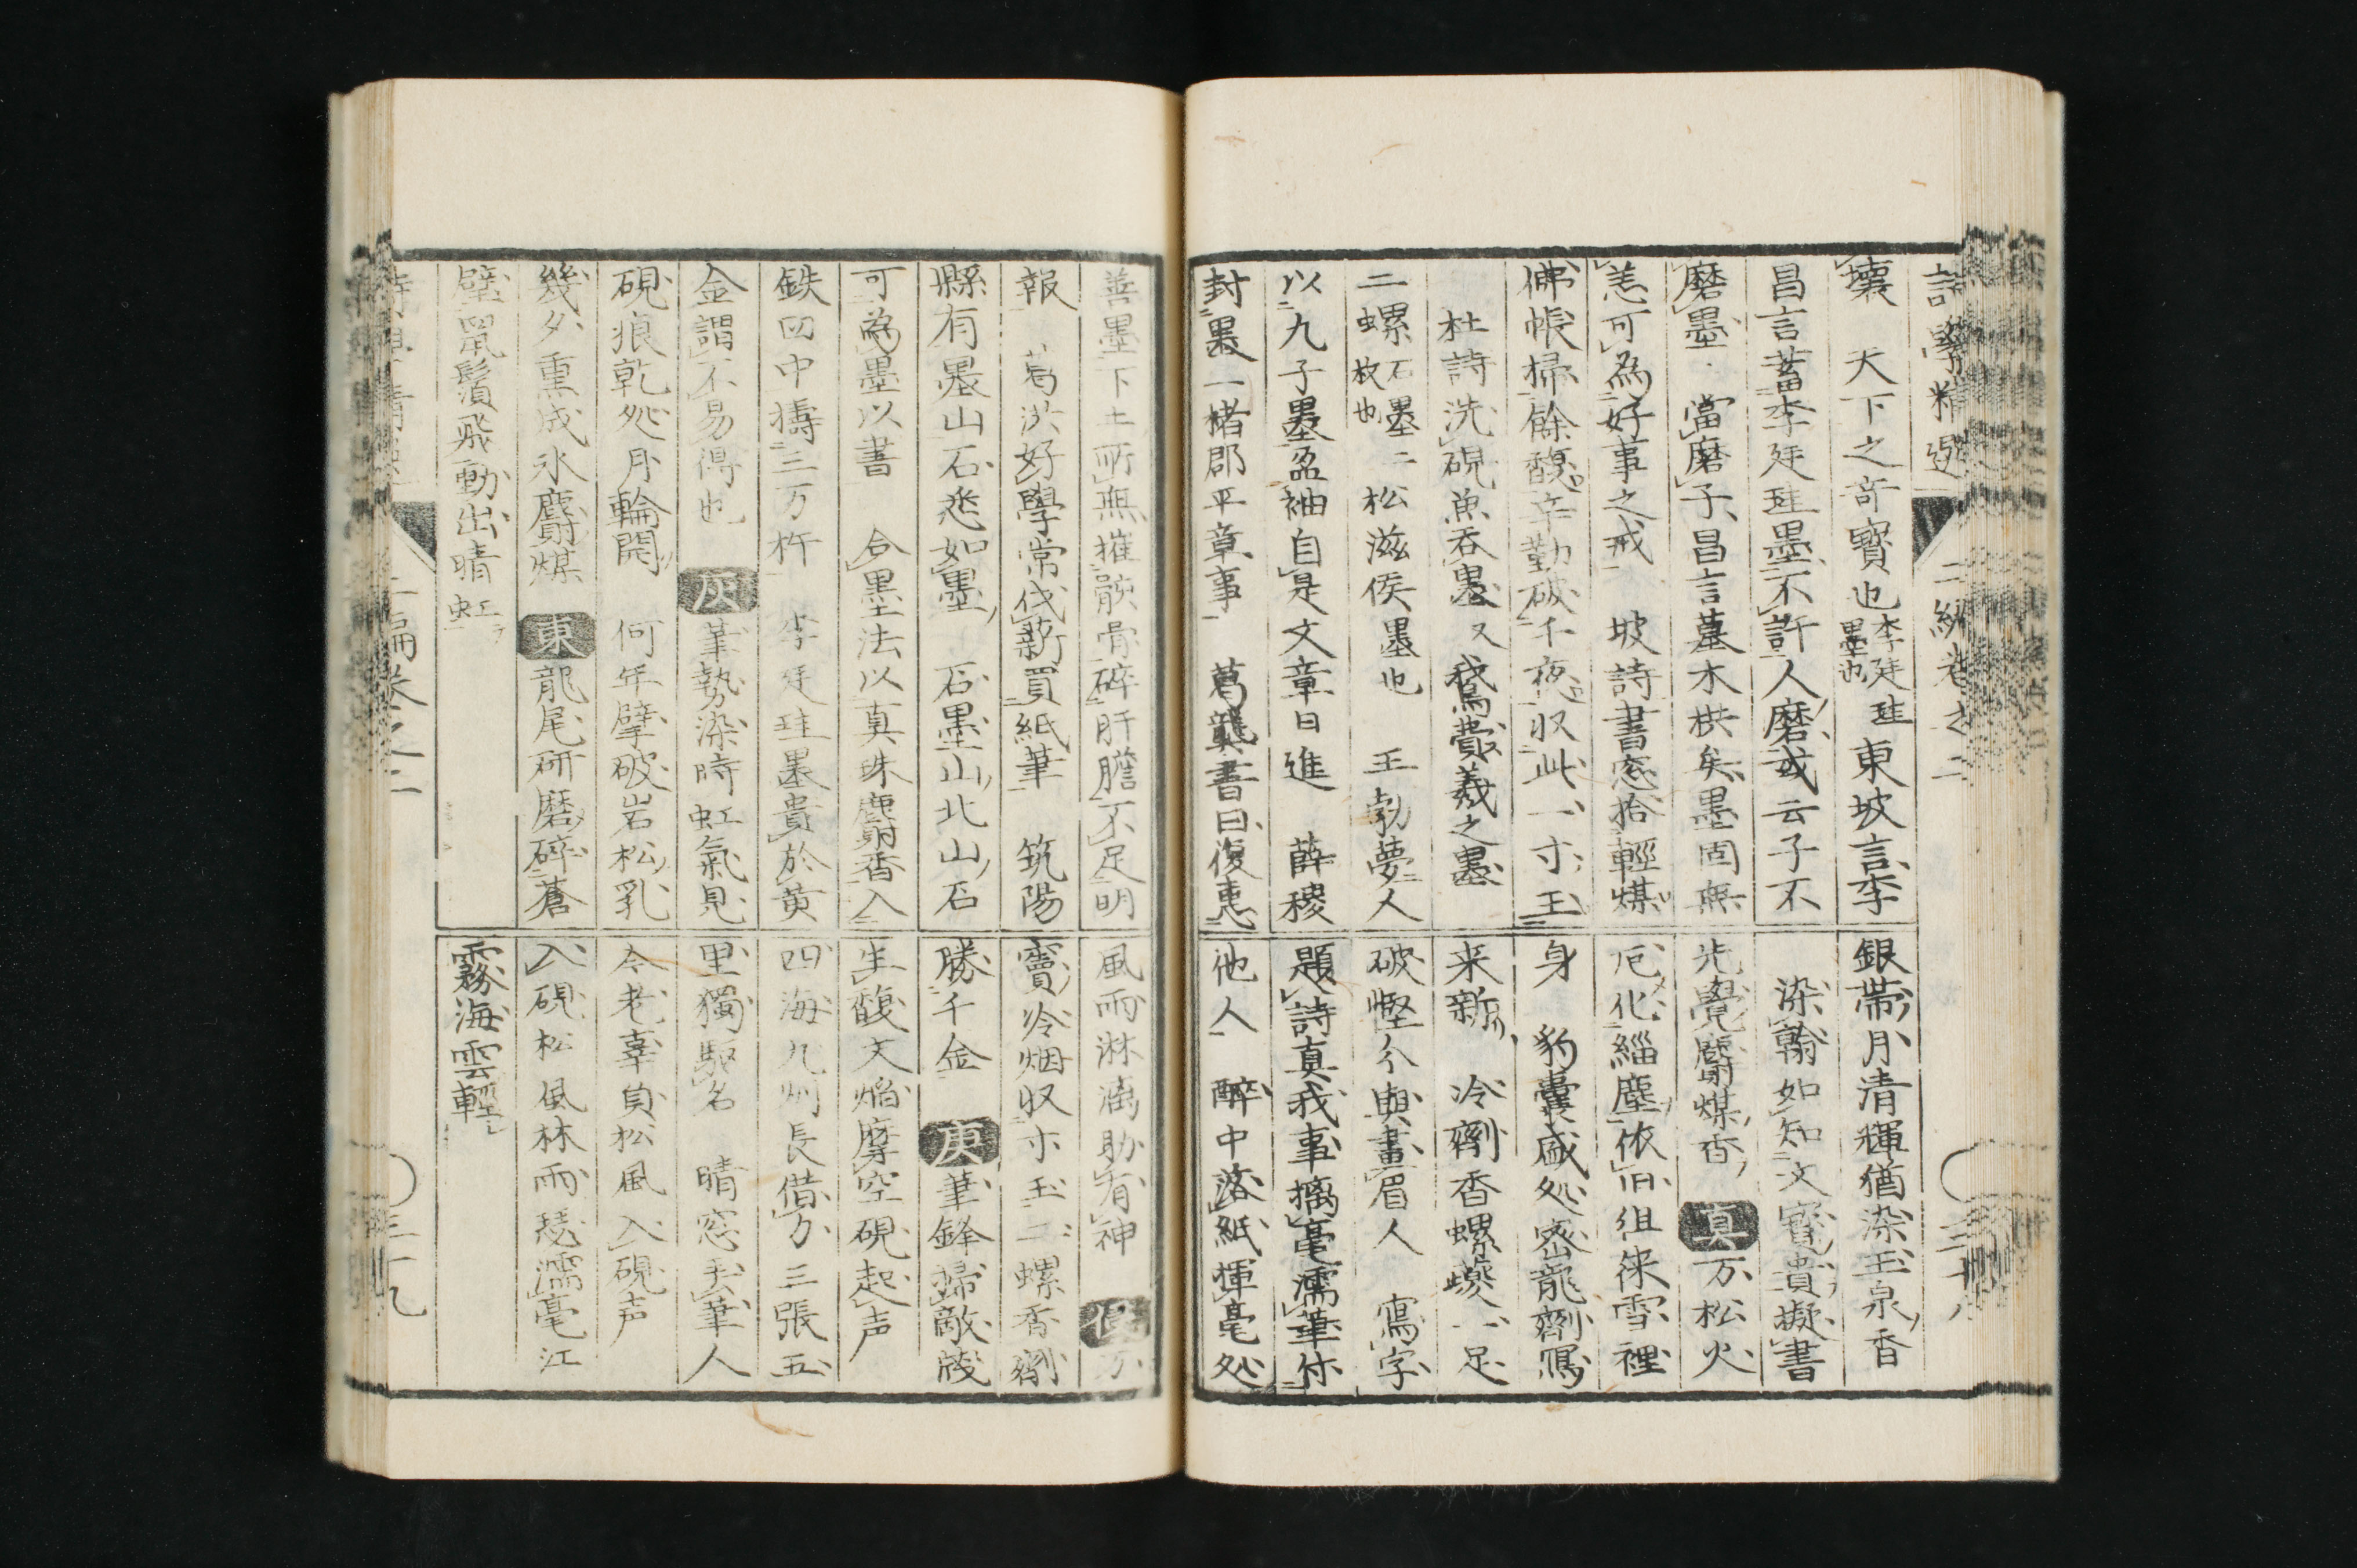 詩學精選 二編卷之二
壞 天下之奇寶也李廷珪墨也 東坡言李
昌言蓄李廷珪墨不許人磨或云子不
磨墨當磨子昌言墓木拱矣墨固無
恙可為好事之戒 坡詩書窓拾輕煤
佛帳掃餘馥辛勤破千夜収此一寸玉
杜詩洗硯魚吞墨又鵞費羲之墨
二螺石墨二枚也 松滋侯墨也 王勃夢人
以九子墨盈袖自是文章日進 薛稷
封墨一楮郡平章事 葛龔書曰復惠
銀帶月清輝猶染玉泉香
染翰如知文寳貴擬書
先覺麝煤香 真 万松火
厄化緇塵依旧徂徠雪裡
身 豹囊盛処密龍劑寫
来新 冷劑香螺 一足
破慳分與畫眉人 寫字
題詩真我事摛毫濡筆作
他人 醉中落紙揮毫処
三十八
善墨下土所無摧骸骨碎肝膽不足明
報 葛洪好學常伐薪買紙筆 筑陽
縣有墨山石悉如墨 石墨山北山石
可為墨以書 合墨法以真珠麝香入
鉄臼中擣三万杵 李廷珪墨貴於黄
金謂不易得也 灰 筆勢染時虹氣見
硯痕乾処月輪開 何年擘破岩松乳
幾夕熏成氷麝煤 東 龍尾研磨碎蒼
璧鼠鬚飛動出晴虹
風雨淋漓助有神
竇冷烟収寸玉二螺香劑
勝千金 庚 筆鋒掃敵牋
生馥文熖摩空硯起声
四海九州長借力三張五
里獨馳名 晴窓弄筆人
今老辜負松風入硯声
入硯松風林雨瑟濡毫江
霧海雲輕
二編卷之二
三十九